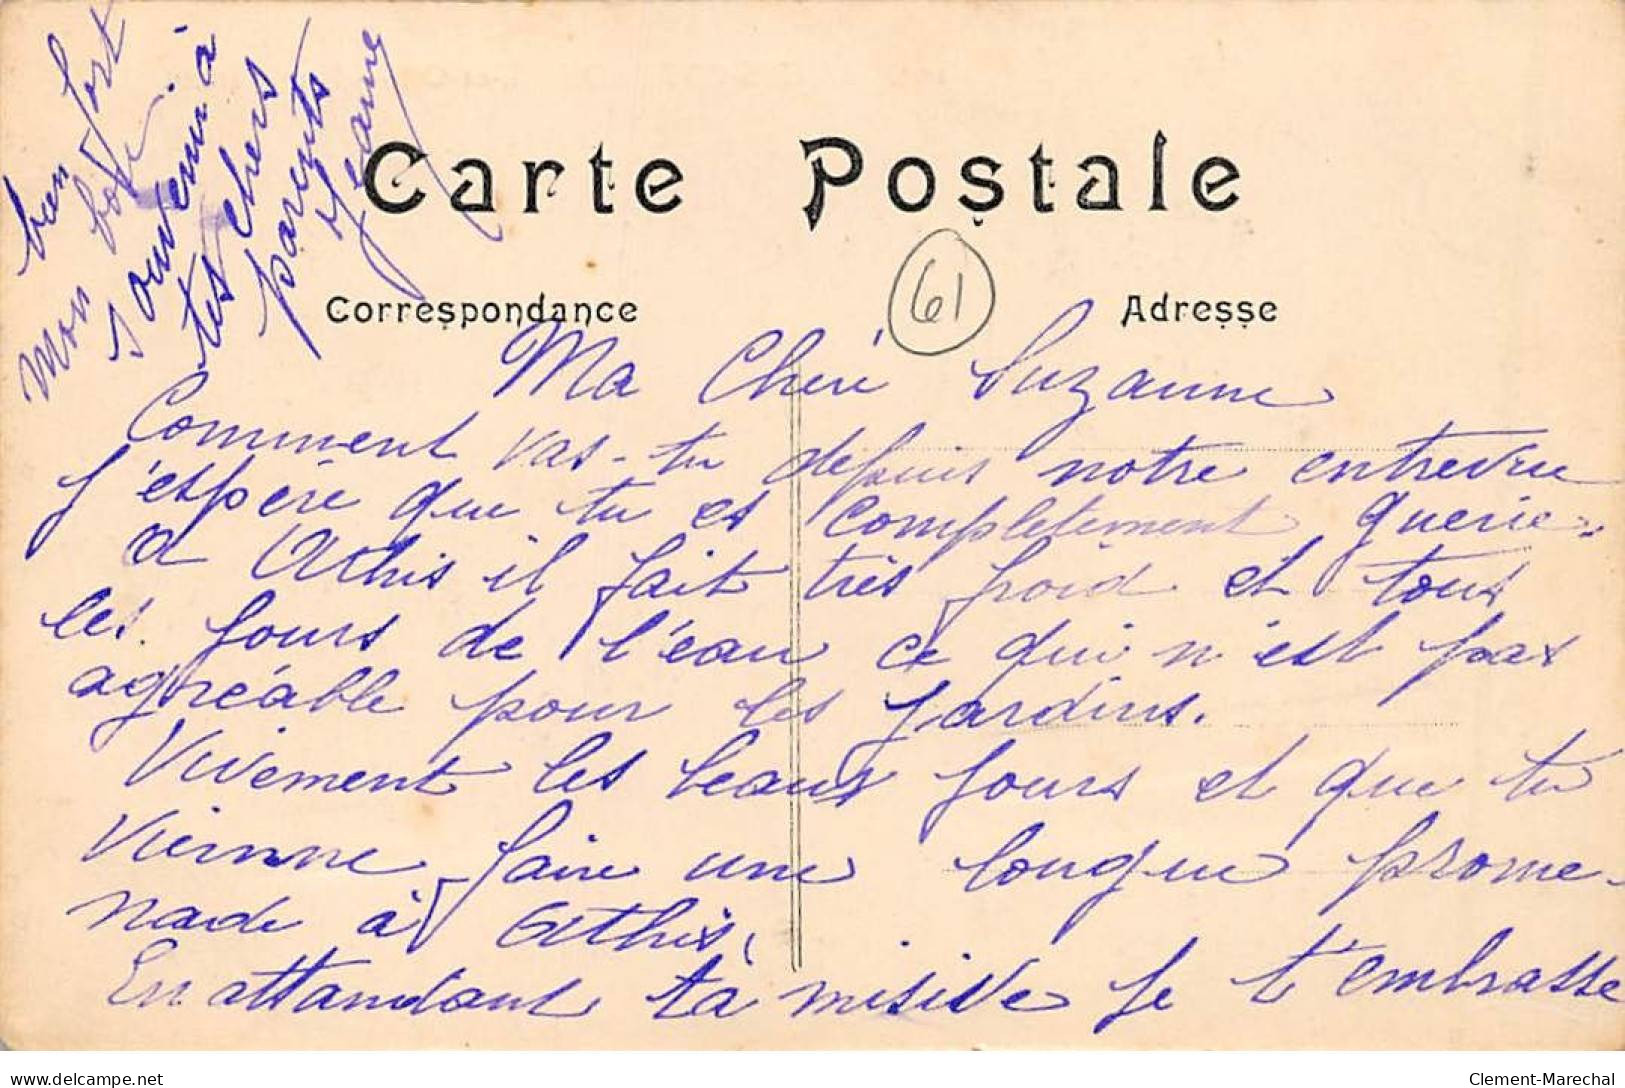 Carte Postale
Correspondance
61
Adresse
Ma Chéri Suzanne
Comment vas-tu depuis notre entrevue
j'espère que tu es complètement guerie.
a Athis il fait très froid et tous
les jours de l'eau ce qui n'est pas
agréable pour les jardins.
Vivement les beaux jours et que tu
vienne faire une longue prome-
nade à Athis,
En attandant ta misive je t'embrasse
bien fort
Mon bon
souvenir à
tes chers
parents
Jeanne
delcampe.net
Clement-Marechal